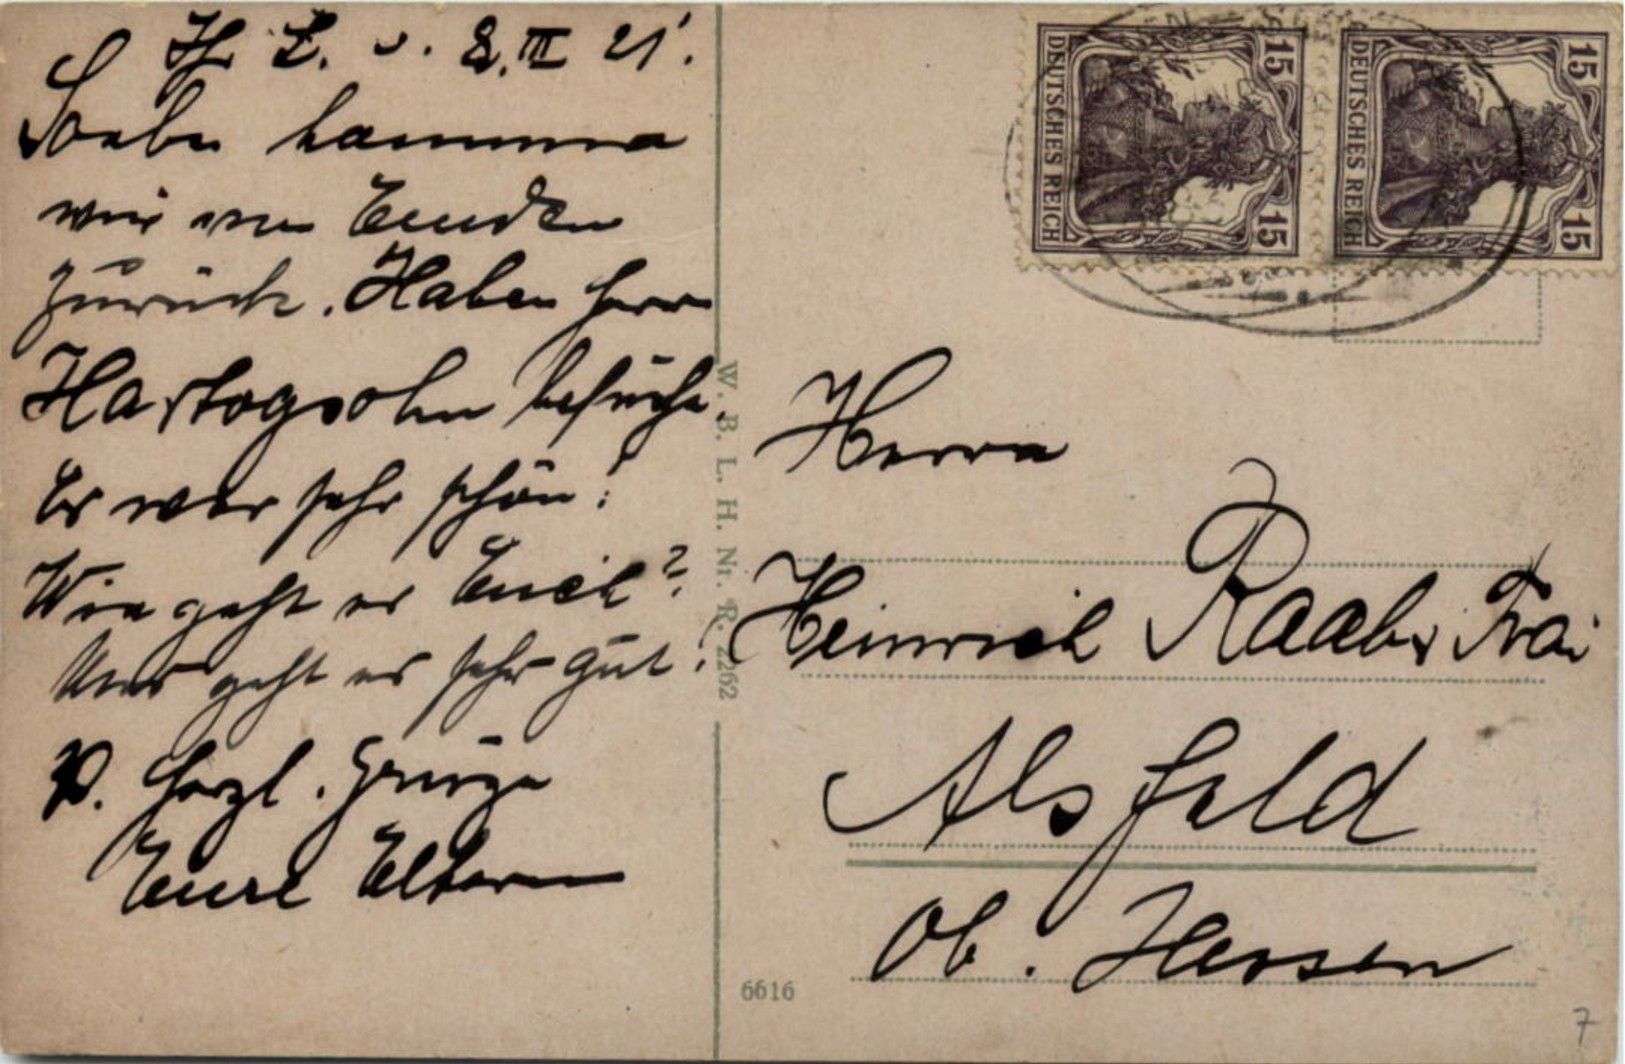 8. III 21.
Soeben kommen
wir von Emden
zurück. Haben Herrn
Hartogsohn besucht.
Es war sehr schön!
Wie geht es Euch?
Uns geht es sehr gut!
Herzl. Grüße
Eure Eltern
W. B. L. H. Nr. R. 2262
6616
DEUTSCHES REICH
15 15
DEUTSCHES REICH
15 15
Herrn
Heinrich Raab
Alsfeld
Ob. Hessen
7